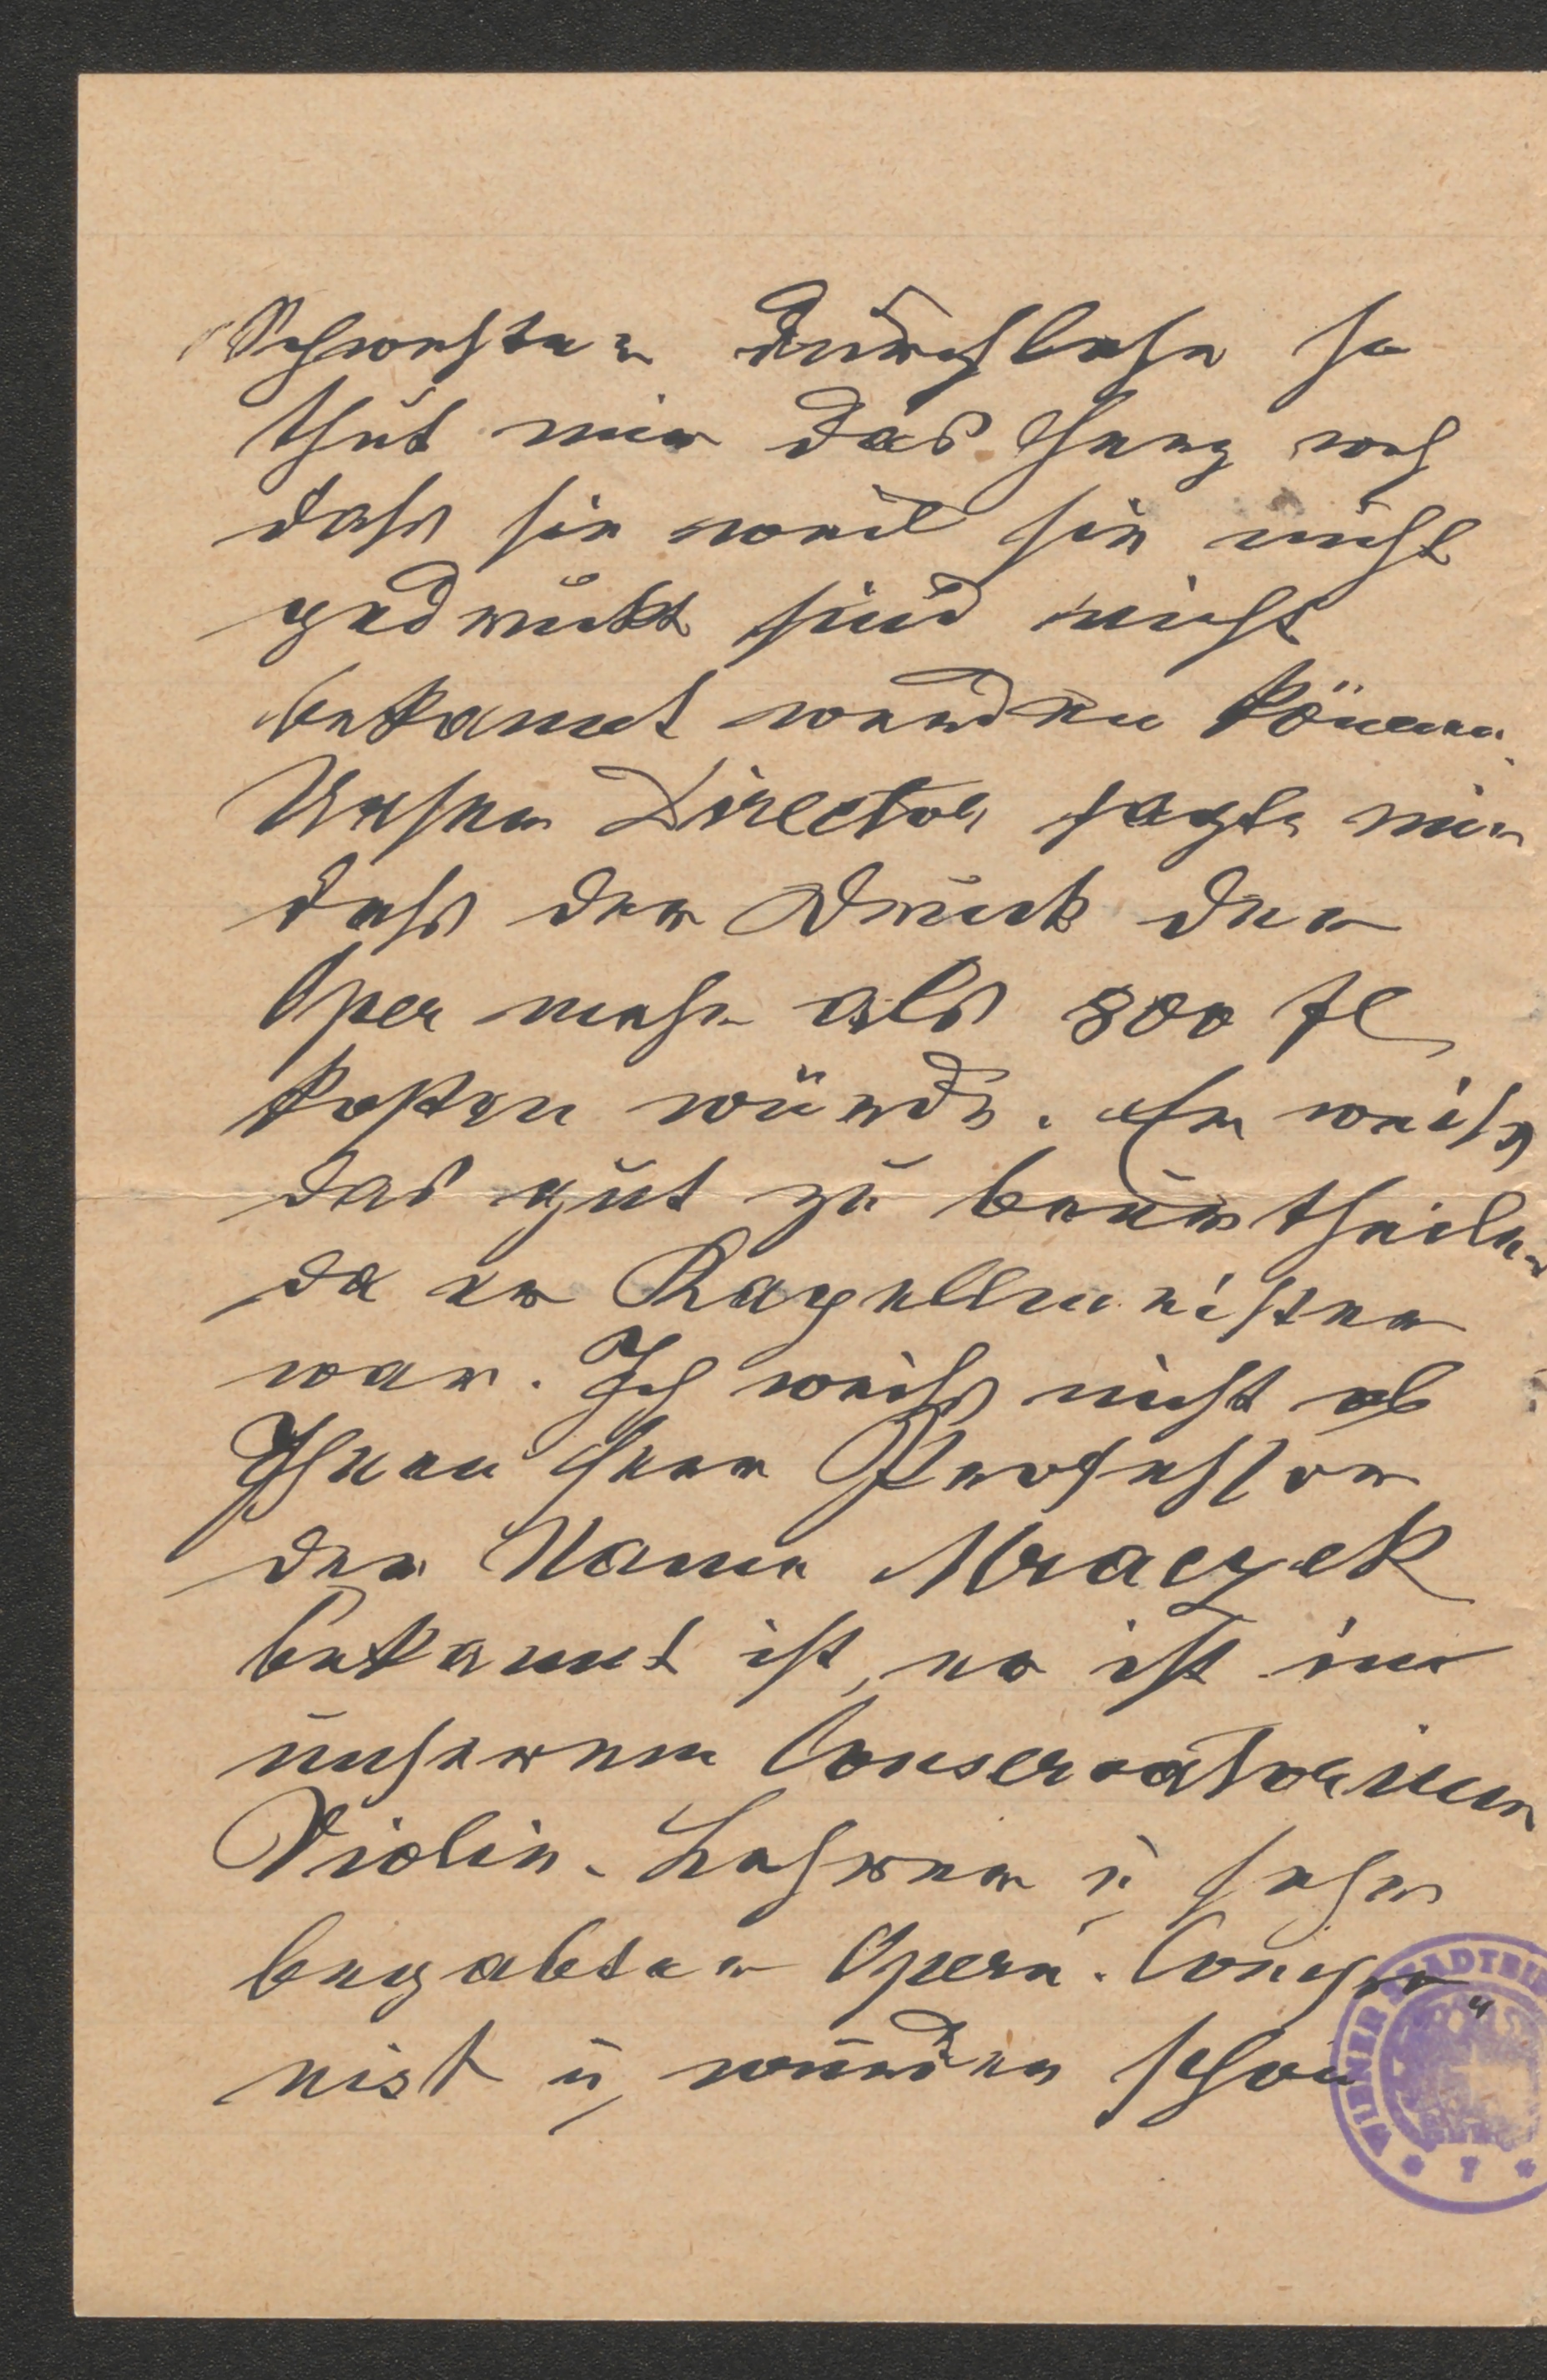 Schwester durchlese so
thut mir das Herz weh
dass sie weil sie nicht
gedruckt sind nicht
bekannt werden können.
Unser Director sagte mir
dass der Druck der
Oper mehr als 800 fl
kosten würde. Er weiss
das gut zu beurtheilen
da er Kapellmeister
war. Ich weiss nicht ob
Ihnen Herr Professor
der Name Mraczek
bekannt ist, er ist im
unserem Conservatorium
Violin-Lehrer u sehr
begabter Opern-Compo„
nist u, würden schon
WIENER STADTBI
* 7 *